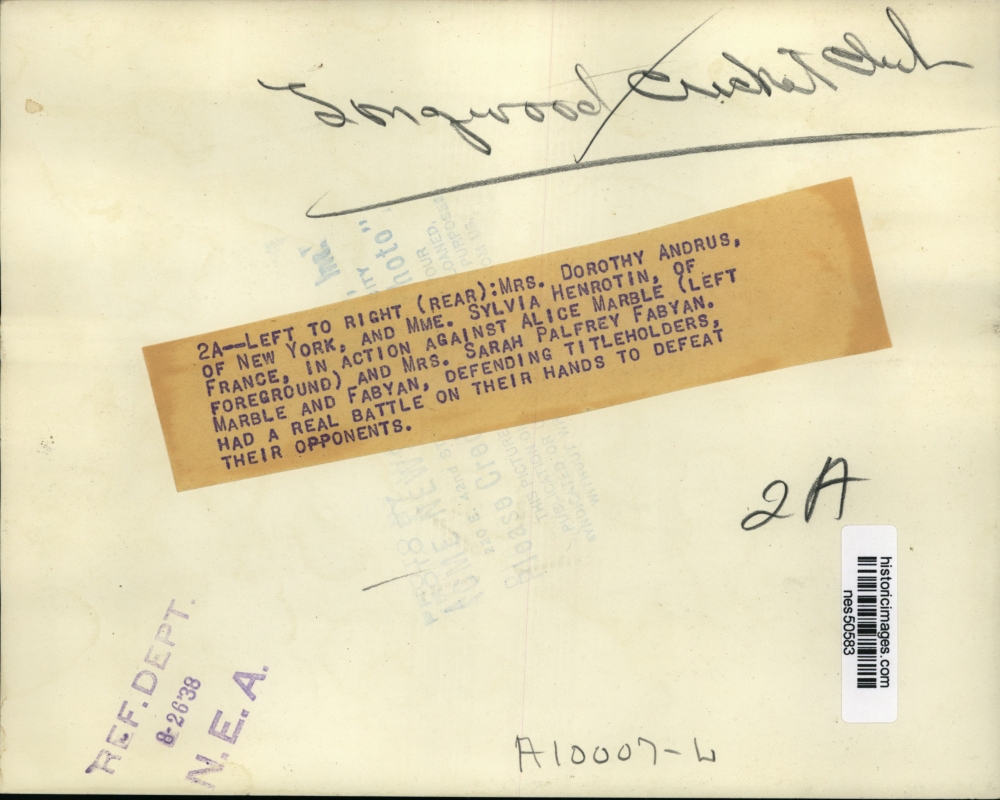 Longwood Cricket Club
2A—LEFT TO RIGHT (REAR):MRS. DOROTHY ANDRUS,
OF NEW YORK, AND MME. SYLVIA HENROTIN, OF
FRANCE, IN ACTION AGAINST ALICE MARBLE (LEFT
FOREGROUND) AND MRS. SARAH PALFREY FABYAN.
MARBLE AND FABYAN, DEFENDING TITLEHOLDERS,
HAD A REAL BATTLE ON THEIR HANDS TO DEFEAT
THEIR OPPONENTS.
2A
historicimages.com
nes50583
REF. DEPT.
8-26'38
N.E.A.
A10007-L